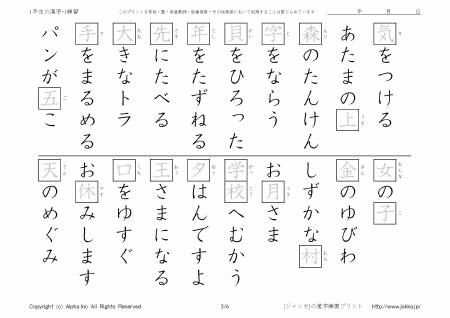 1年生の漢字-1練習
このプリントを学校・塾・家庭教師・医療施設・その他施設において利用することは禁じられています
年 月 日
気をつける
き
あたまの上
うえ
森のたんけん
もり
字をならう
じ
貝をひろった
かい
年をたずねる
とし
先にたべる
さき
大きなトラ
おお
手をまるめる
て
パンが五こ
ご
女の子
おんな こ
金のゆびわ
きん
しずかな村
むら
お月さま
つき
学校へむかう
がっ こう
夕はんですよ
ゆう
王さまになる
おう
口をゆすぐ
くち
お休みします
やす
天のめぐみ
てん
Copyright (c) Alpha.Inc All Rights Reserved.
3/6
[ジャッカ]の漢字練習プリント http://www.jakka.jp/